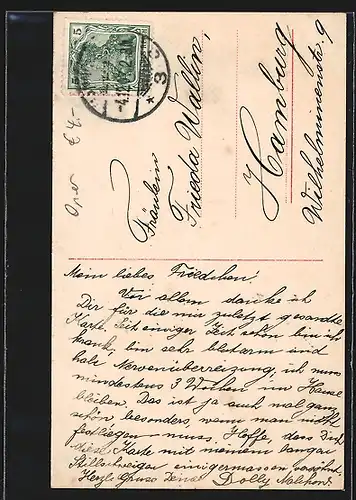 5
3
Oper € 4.-
Fräulein
Frieda Wallin,
Hamburg
Wilhelminenstr. 9
Mein liebes Friedchen!
Vor allem danke ich
Dir für die mir zuletzt gesandte
Karte. Seit einiger Zeit schon bin ich
krank, bin sehr blutarm und
habe Nervenüberreizung, ich muss
mindestens 3 Wochen im Hause
bleiben. Das ist ja auch mal ganz
schön besonders, wenn man nicht
festliegen muss. Hoffe, dass Dich
diese Karte mit meinem langen
Stillschweigen einigermassen versöhnt.
Herzl. Gruss Deine Dolly